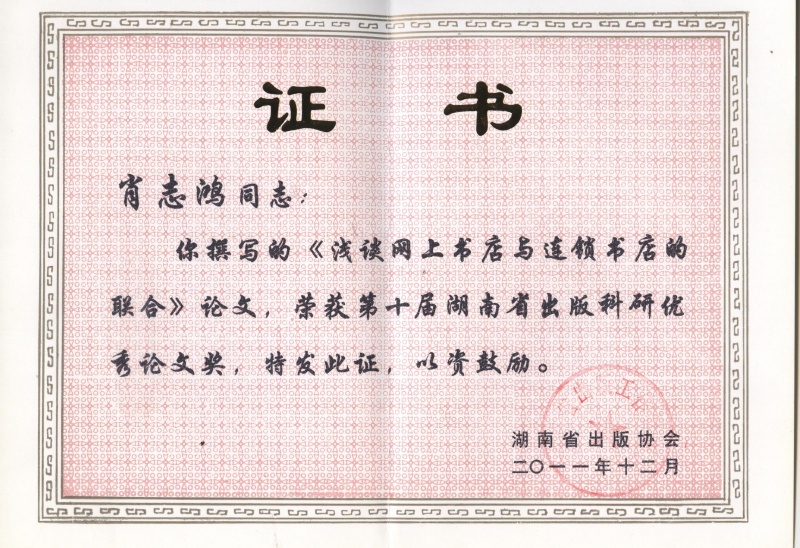 证书
肖志鸿同志：
你撰写的《浅谈网上书店与连锁书店的
联合》论文，荣获第十届湖南省出版科研优
秀论文奖，特发此证，以资鼓励。
湖南省出版协会
二〇一一年十二月